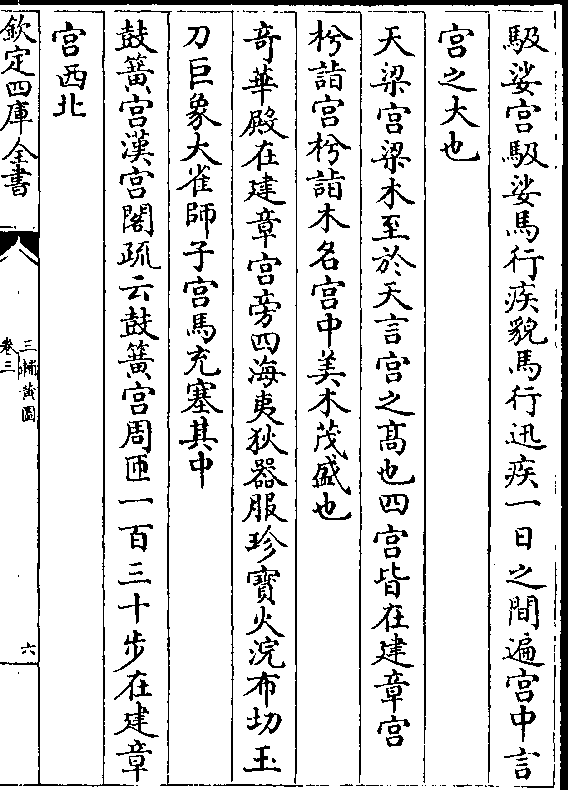 馺娑宫馺娑馬行疾貌馬行迅疾一日之間遍宫中言
宫之大也
天梁宫梁木至於天言宫之髙也四宫皆在建章宫
枍詣宫枍詣木名宫中美木茂盛也
竒華殿在建章宫旁四海夷狄器服珍寳火浣布切玉
刀巨象大雀師子宫馬充塞其中
鼓簧宫漢宫閣疏云鼓簧宫周匝一百三十步在建章
宫西北
欽定四庫全書
三輔黄圖
卷三
六